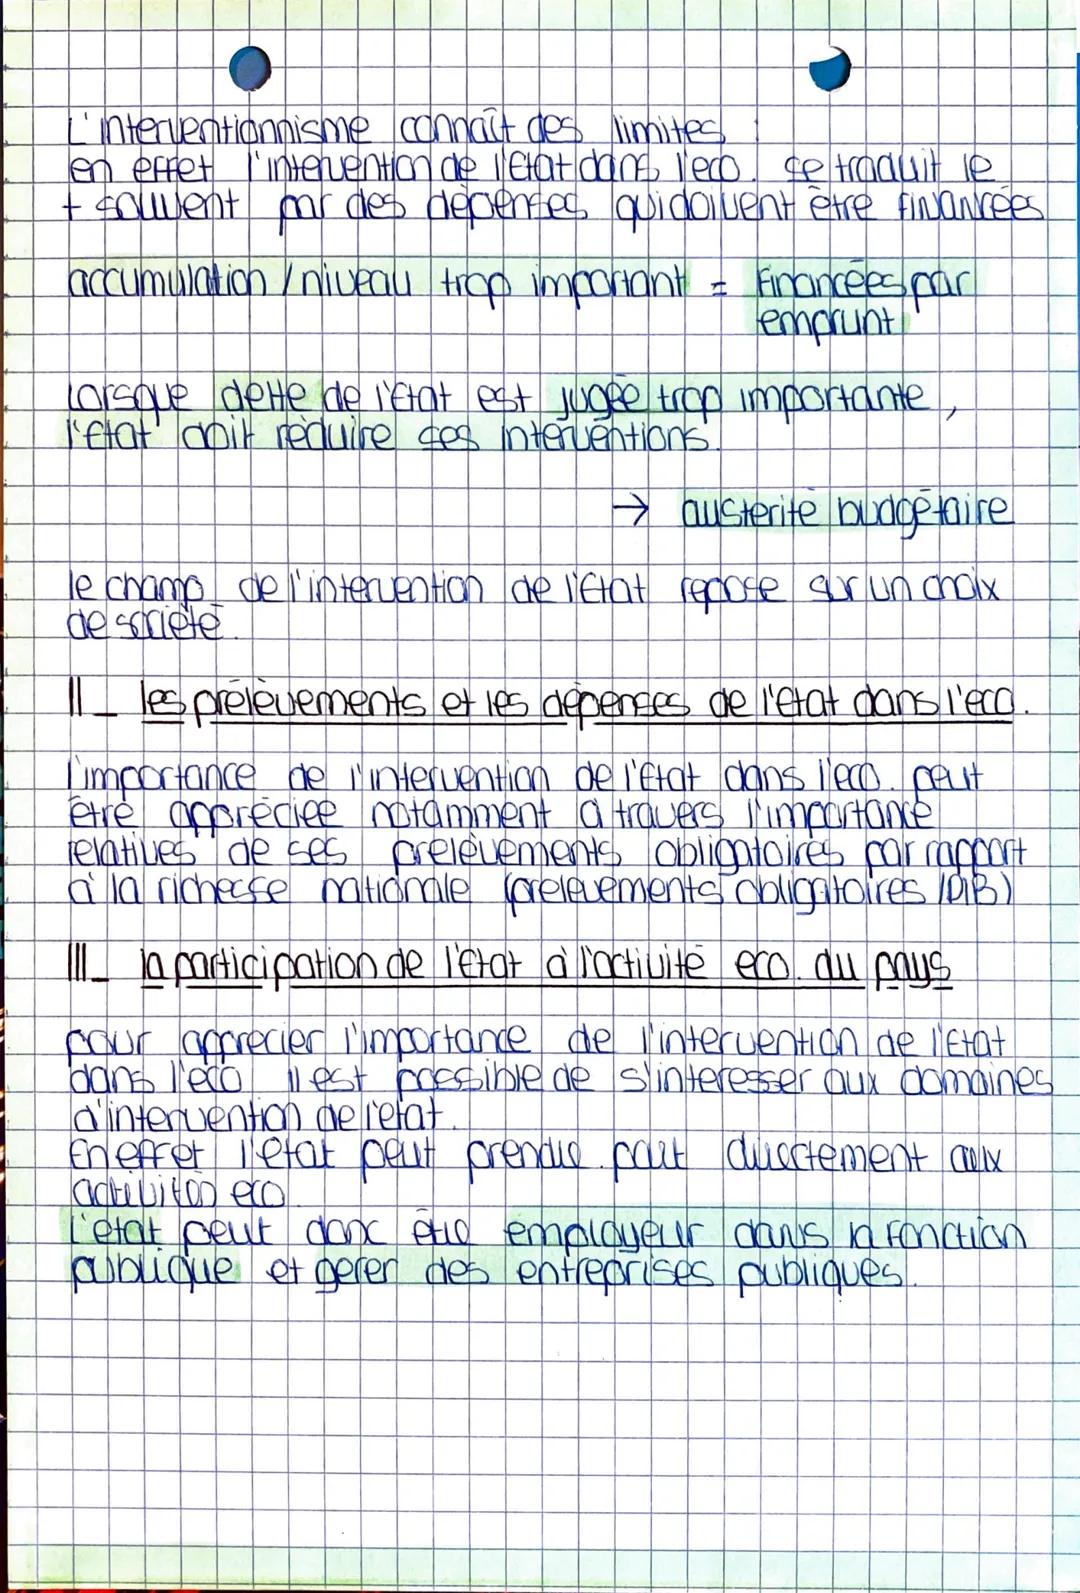 L'interventionnisme connaît des limites :
en effet l'intervention de l'Etat dans l'eco. se traduit le
+ souvent par des dépenses qui doivent être financées
accumulation / niveau trop important = financées par
emprunt
Lorsque dette de l'Etat est jugée trop importante,
l'Etat doit réduire ses interventions.
→ austerité budgétaire
le champ de l'intervention de l'Etat repose sur un choix
de société.
II_ les prélèvements et les dépenses de l'état dans l'eco.
l'importance de l'intervention de l'Etat dans l'eco. peut
être appréciée notamment à travers l'importance
relatives de ses prelèvements obligatoires par rapport
à la richesse nationale (prelevements obligatoires / PIB)
III_ la participation de l'Etat à l'activité eco. du pays
pour apprecier l'importance de l'intervention de l'Etat
dans l'eco il est possible de s'interesser aux domaines
d'intervention de l'etat.
En effet l'etat peut prendre part directement aux
activités eco.
L'etat peut donc être employeur dans la fonction
publique et gerer des entreprises publiques.